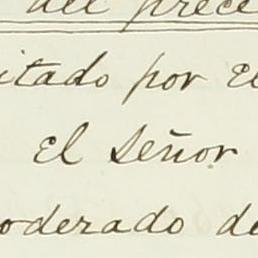 del prece
itado por El
El Señor
oderado de